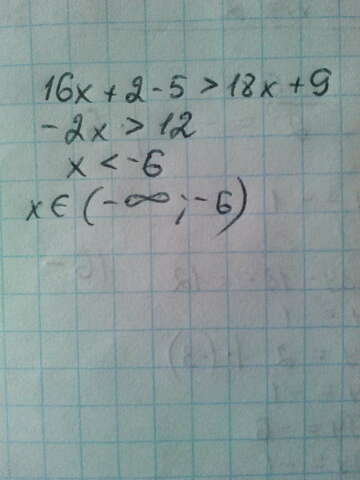 16x + 2 - 5 > 18x + 9
- 2x > 12
x < -6
x ∈ (-∞; -6)